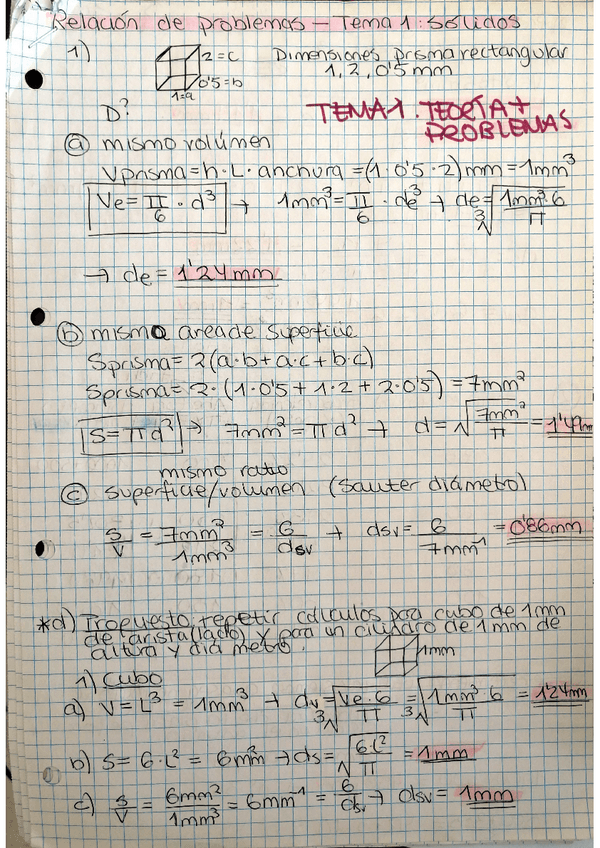 Relación de problemas - Tema 1: sólidos
1) 2=c Dimensiones prisma rectangular
0'5=b 1, 2, 0'5 mm
1=a
D? TEMA 1. TEORÍA +
PROBLEMAS
a) mismo volúmen
Vprisma = h · L · anchura = (1 · 0'5 · 2) mm = 1mm³
Ve = π/6 · d³ → 1mm³ = π/6 · de³ → de = ³√(1mm³·6/π)
→ de = 1'24mm
b) misma area de superficie
Sprisma = 2(a·b + a·c + b·c)
Sprisma = 2 · (1·0'5 + 1·2 + 2·0'5) = 7mm²
S = πd² → 7mm² = πd² → d = √(7mm²/π) = 1'49m
mismo ratio
c) superficie/volumen (Sauter diámetro)
S/V = 7mm²/1mm³ = 6/dsv → dsv = 6/7mm⁻¹ = 0'86mm
*d) Propuesto, repetir cálculos para cubo de 1mm
de arista (lado) y para un cilindro de 1mm de
altura y diámetro.
1mm
1) Cubo
a) V = L³ = 1mm³ → dv = ³√(Ve·6/π) = ³√(1mm³·6/π) = 1'24mm
b) S = 6·L² = 6mm² → ds = √(6·L²/π) = 1mm
c) S/V = 6mm²/1mm³ = 6mm⁻¹ = 6/dsv → dsv = 1mm